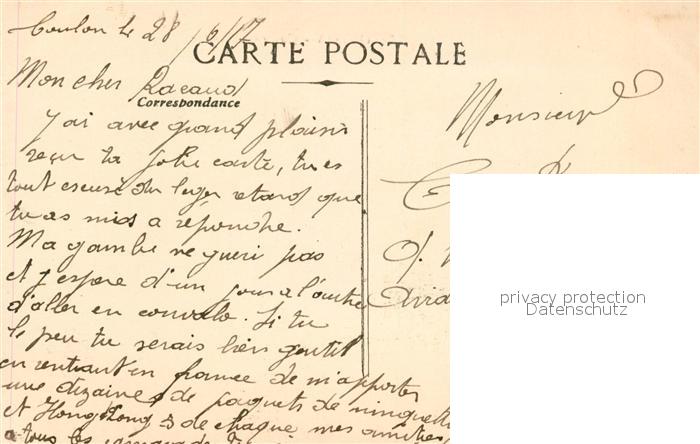 Toulon le 28/6/17
CARTE POSTALE
Mon cher Racaud
Correspondance
Monsieur
J'ai avec grand plaisir
reçu ta jolie carte, tu es
tout escusé du leger retard que
tu as mis a répondre.
Ma gambe ne gueri pas
et j'espere d'un jour a l'autre
d'aller en convalo. Si tu
le peu tu serais bien gentil
en rentrant en france de m'apporter
une dizaine de paquets de
et Hong Kong de chaque mes amitiés
a tous les
privacy protection
Datenschutz